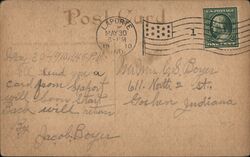 Post Card
LAPORTE
MAY 30
6-PM
1910
IND.
1
May 30-1910 4:45 P.M.
I'll send you a
card from Laport
will soon start
back will return
Jacob Boyer
Mr. Wm C. S. Boyer
611 North 2 St.
Goshen Indiana